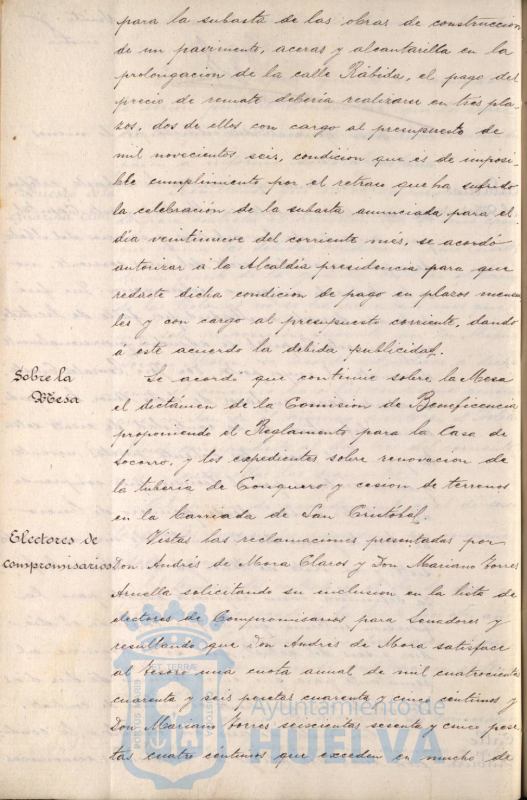 para la subasta de las obras de construccion
de un pavimento, aceras y alcantarilla en la
prolongacion de la calle Rábida, el pago del
precio de remate deberia realizarse en tres pla-
zos, dos de ellos con cargo al presupuesto de
mil novecientos seis, condicion que es de imposi-
ble cumplimiento por el retraso que ha sufrido
la celebración de la subasta anunciada para el
dia veintinueve del corriente més, se acordó
autorizar á la Alcaldia presidencia para que
redacte dicha condicion de pago en plazos mensua
les y con cargo al presupuesto corriente, dando
a este acuerdo la debida publicidad.
Sobre la
Mesa
Se acordo que continúe sobre la Mesa
el dictámen de la Comision de Beneficencia
proponiendo el Reglamento para la Casa de
Socorro, y los expedientes sobre renovacion de
la tuberia de Conquero y cesion de terrenos
en la barriada de San Cristóbal.
Electores de
compromisarios
Vistas las reclamaciones presentadas por
Don Andrés de Mora Claros y Don Mariano Torres
solicitando su inclusion en la lista de
electores de Compromisarios para Senadores y
resultando que Don Andrés de Mora satisface
al Tesoro una cuota anual de mil cuatrocientas
cuarenta y seis pesetas cuarenta y cinco céntimos y
Don Mariano Torres seiscientas sesenta y cinco pese-
tas cuatro céntimos que exceden en mucho de
Ayuntamiento de
HUELVA